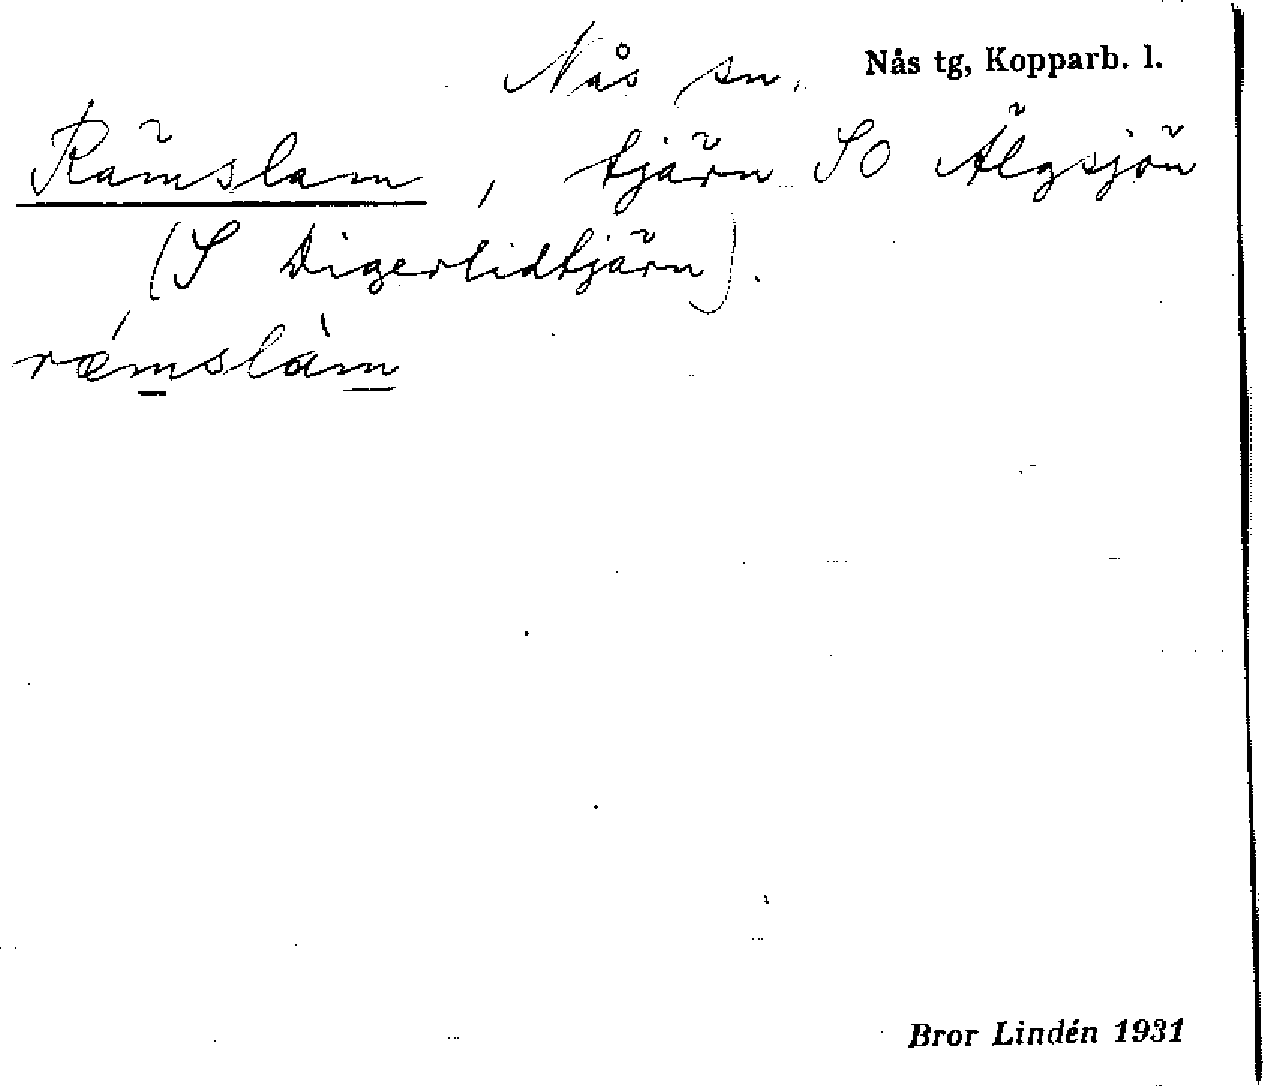 Nås sn. Nås tg, Kopparb. l.
Rämslam, tjärn SO Älgsjön
(S Digerlidtjärn).
rǽmslàm
Bror Lindén 1931